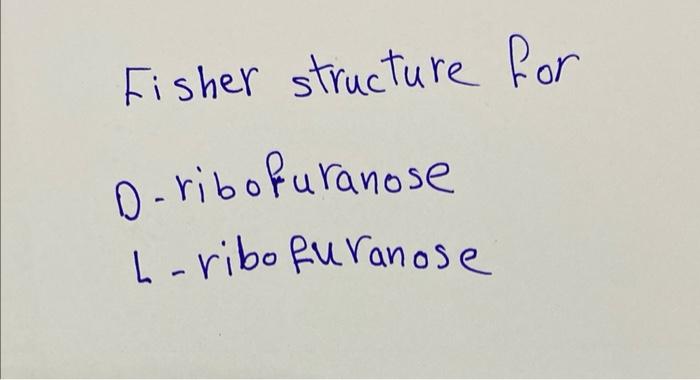 Fisher structure for
D-ribofuranose
L-ribofuranose